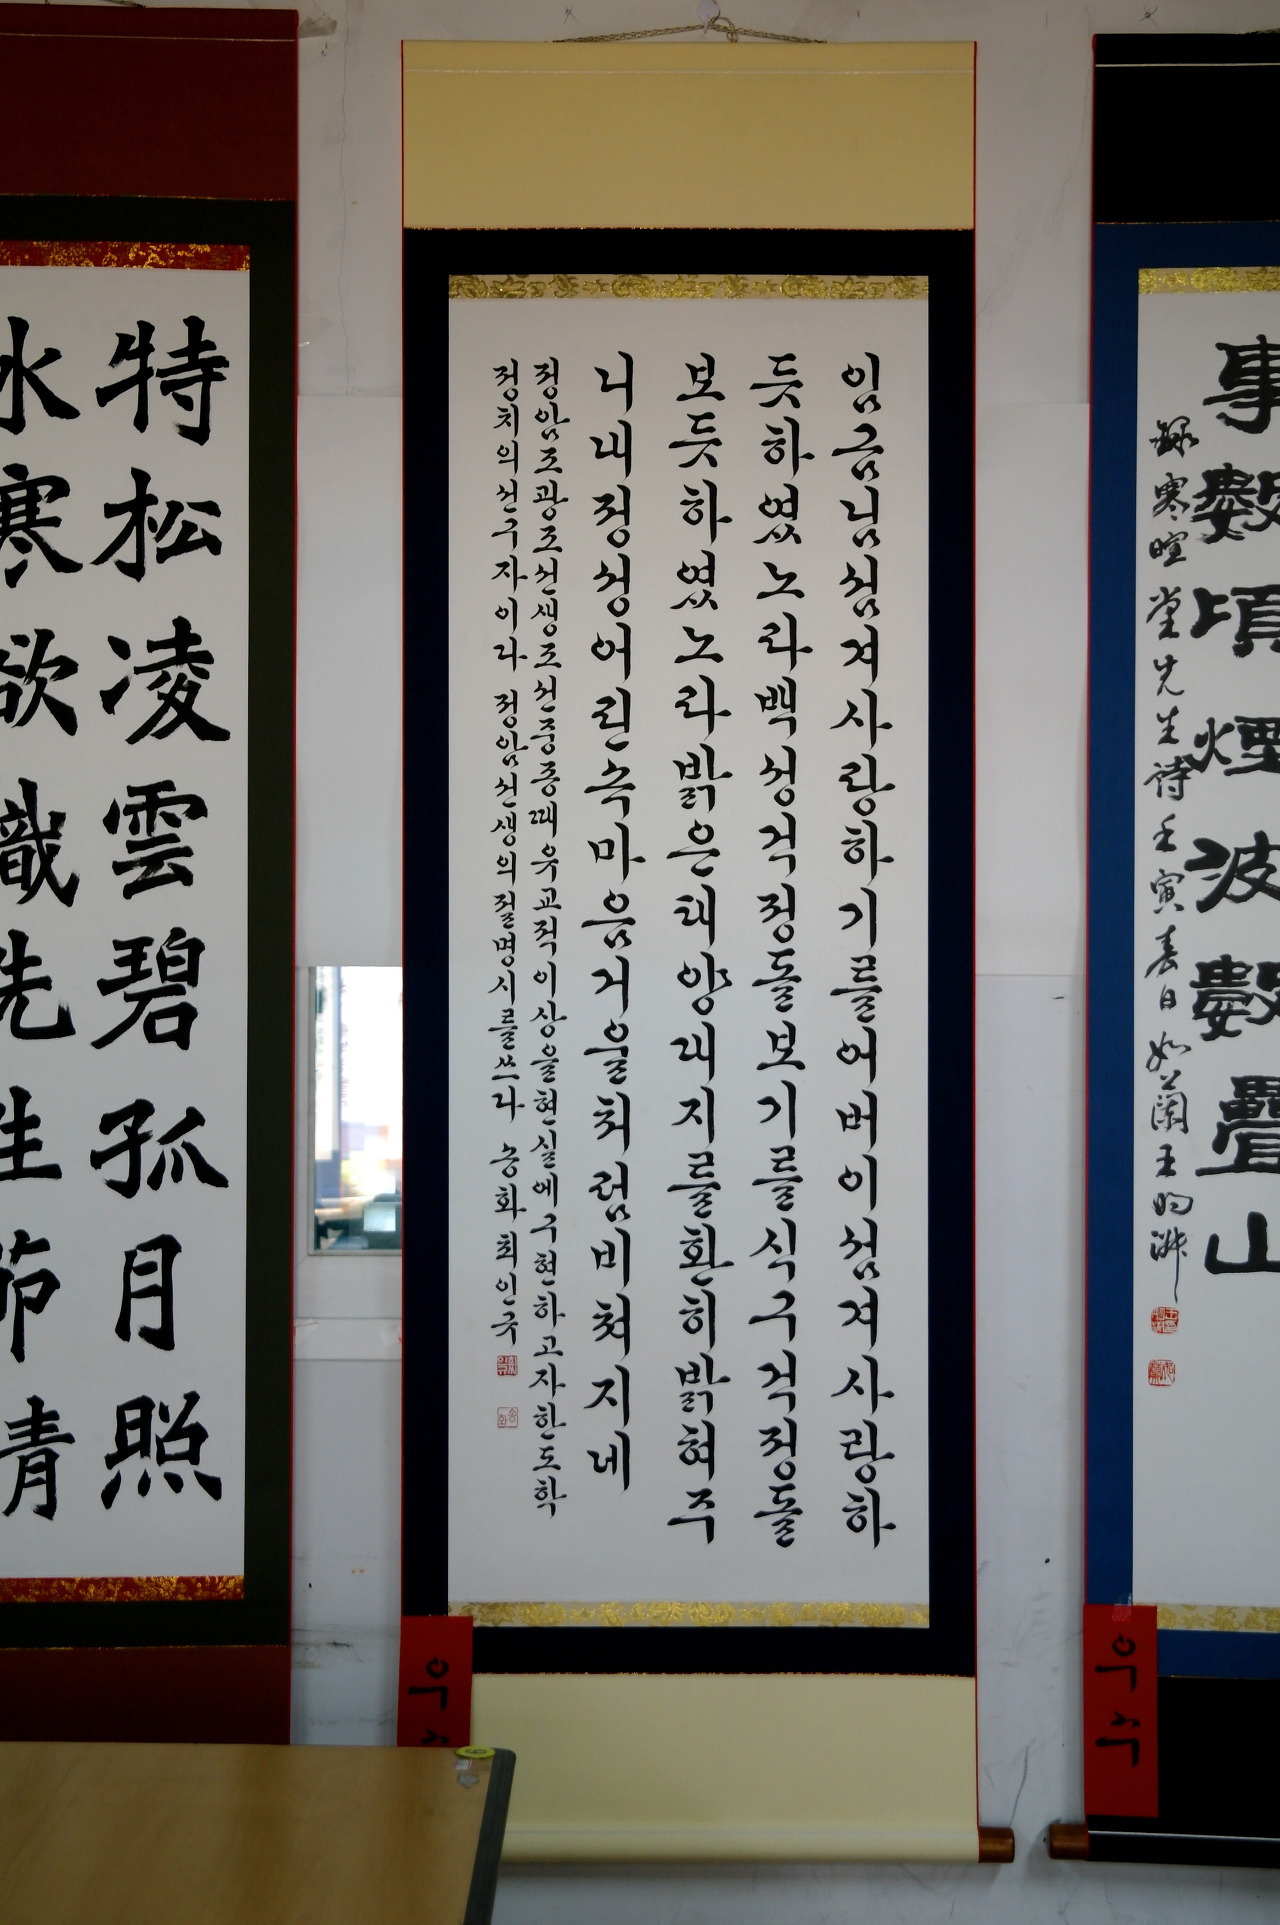 事數頃煙波數疊山
錄寒暄堂先生詩壬寅春日如蘭王
임금님섬겨사랑하기를어버이섬겨사랑하
듯하였노라백성걱정돌보기를식구걱정돌
보듯하였노라밝은태양대지를환히밝혀주
니내정성어린속마음거울처럼비쳐지네
정암조광조선생조선중종때유교적이상을현실에구현하고자한도학
정치의선구자이라 정암선생의절명시를쓰다 송화최인국
特松凌雲碧孤月照
水寒欲識先生節青
우수
우수